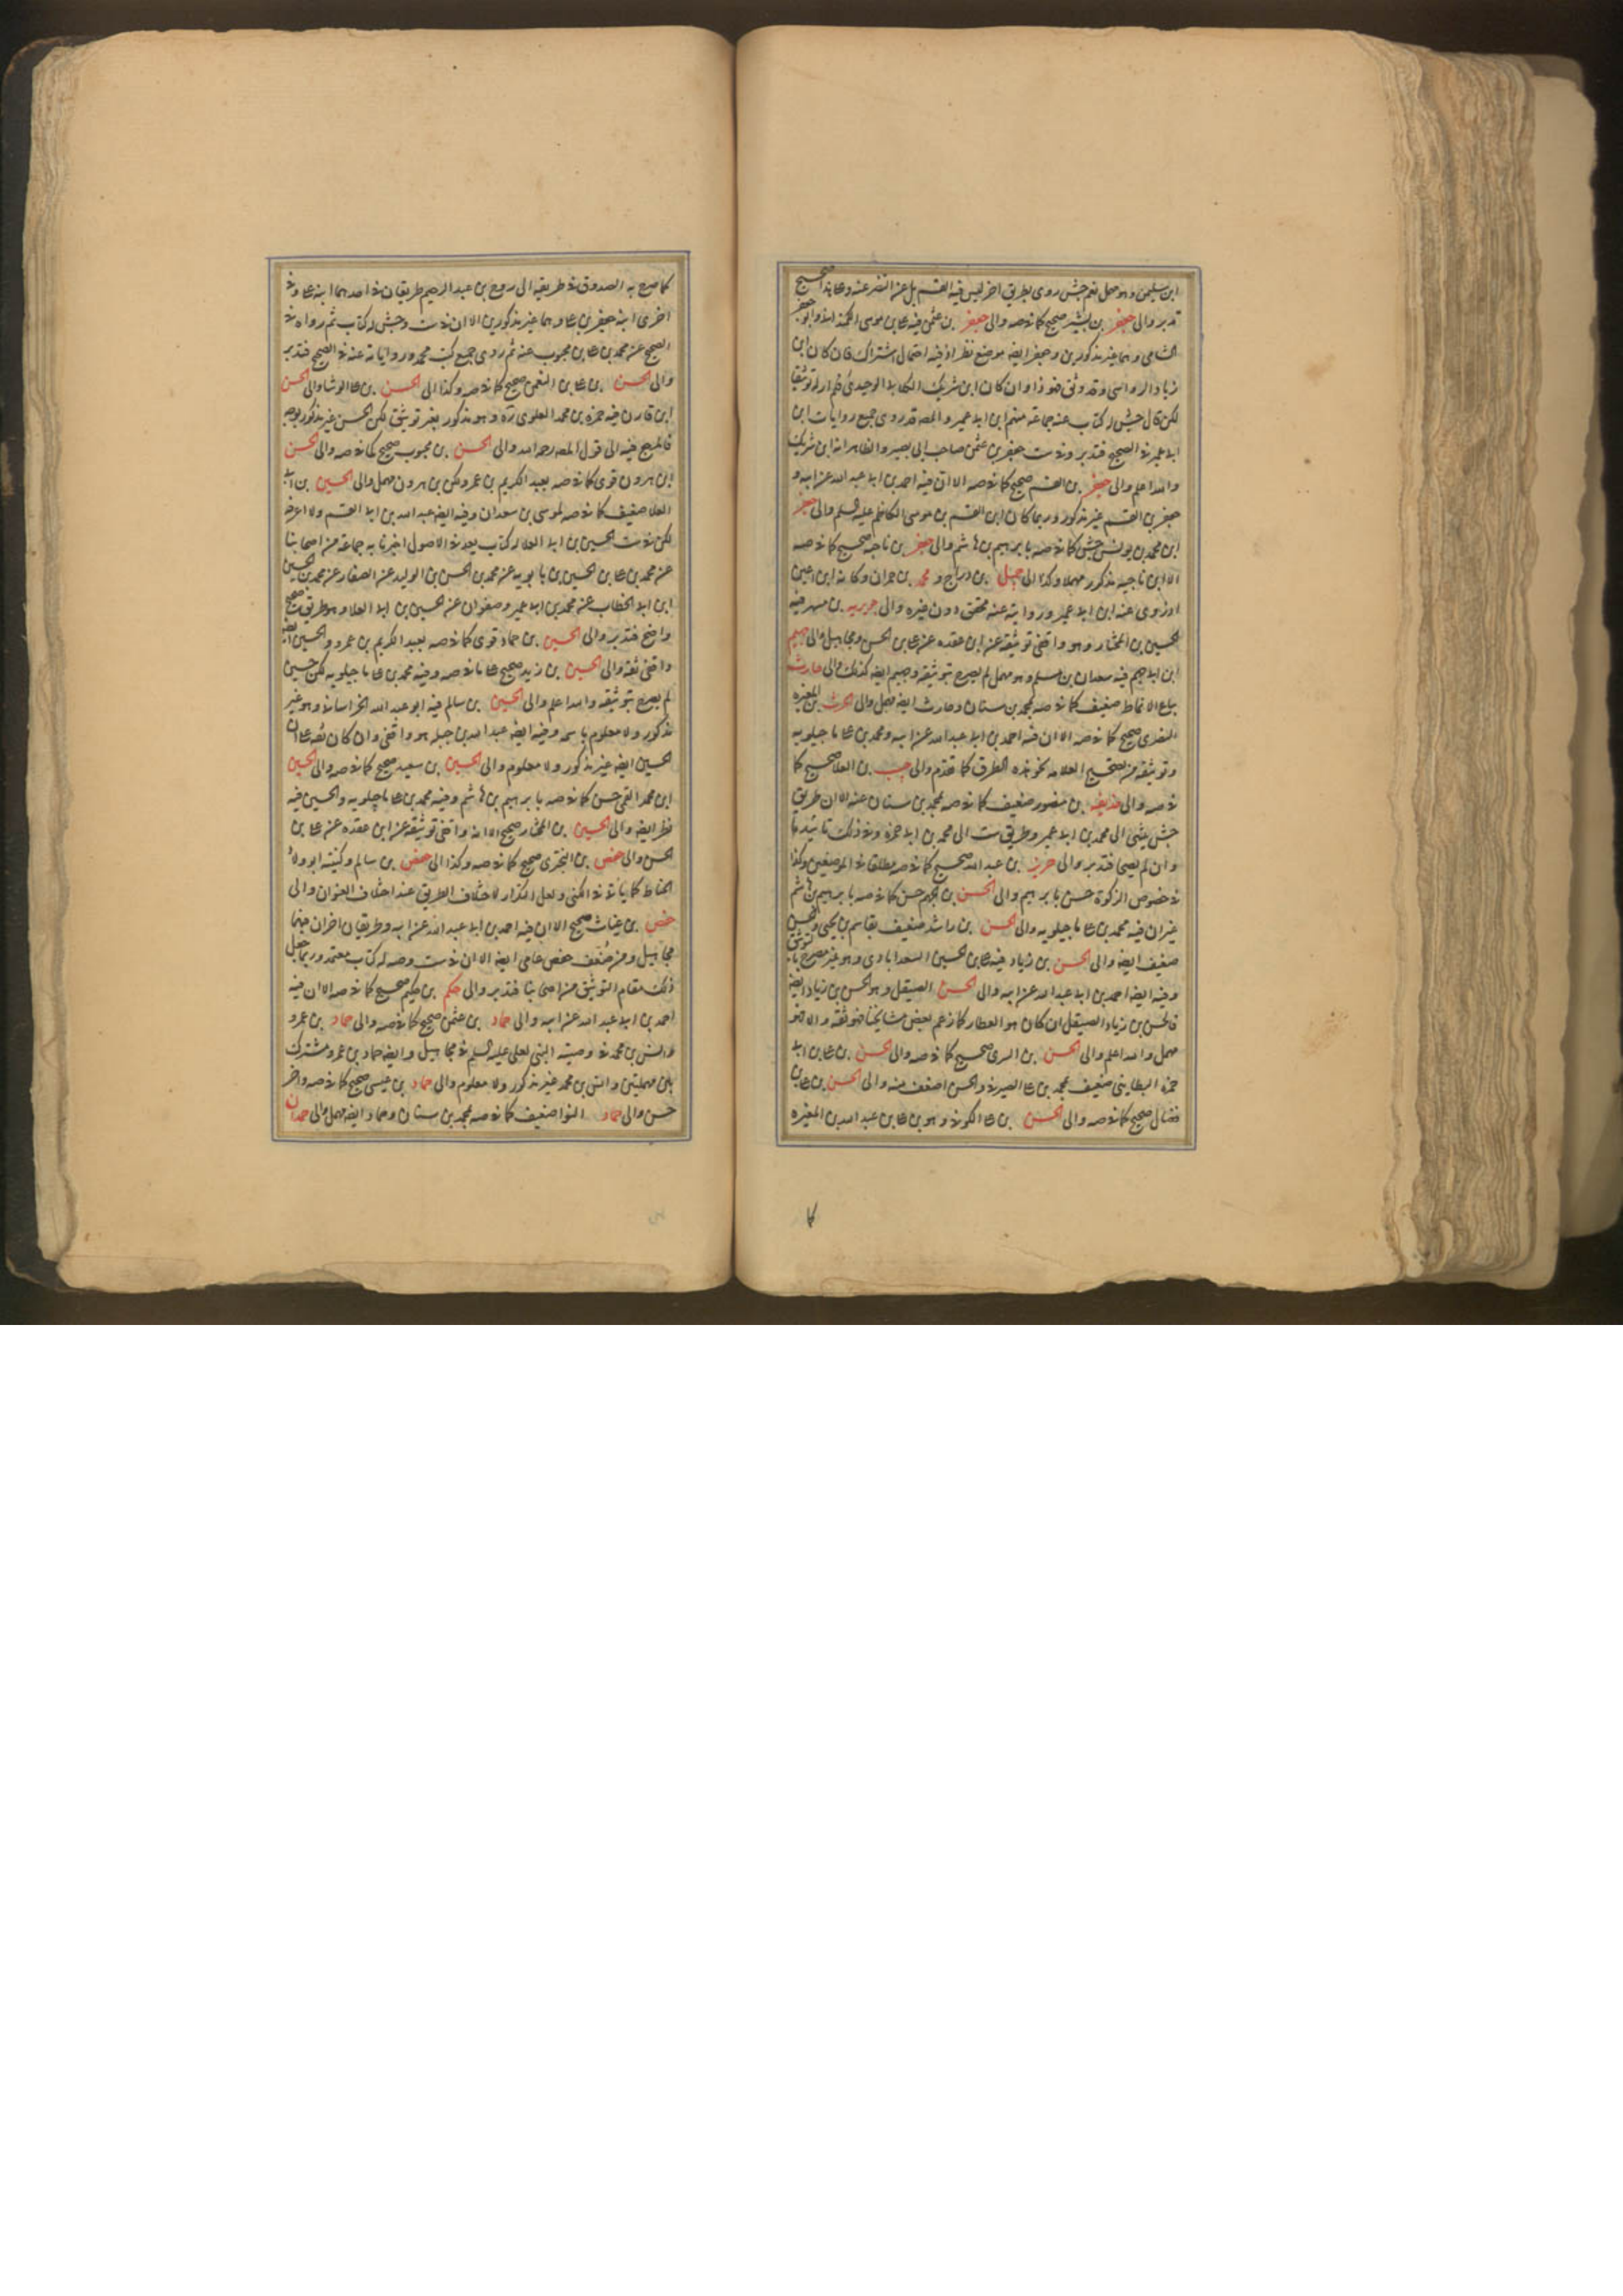 ابن سليمن وهو مهمل نعم جش روى بطريق اخر ليس فيه القسم بل عن النضر عنه وعلى هذا صحيح
تدبر والى جعفر بن بشير صحيح كما في صه والى جعفر بن عثمن فيه علي بن موسى الكمنداني وابو جعفر
الشامي وهما غير مذكورين وجعفر ايضه موضع نظر اذ فيه احتمال اشتراك فان كان ابن
زياد الرواسي وقد وثق فهو ذا وان كان ابن شريك الكلابي الوحيدي فلم ار له توثيقا
لكن قال جش له كتاب عنه جماعة منهم ابن ابي عمير والمصه قد روى جميع روايات ابن
ابي عمير في الصحيح فتدبر وفي ست جعفر بن عثمن صاحب ابي بصير والظاهر انه ابن شريك
والله اعلم والى جعفر بن القسم صحيح كما في صه الا ان فيه احمد بن ابي عبد الله عن ابيه و
جعفر بن القسم غير مذكور وربما كان ابن القسم بن موسى الكاظم عليه السلم والى جعفر
ابن محمد بن يونس حسن كما في صه بابرهيم بن هاشم والى جعفر بن ناجيه صحيح كما في صه
الا ابن ناجيه مذكور مهملا وكذا الى جميل بن دراج و محمد بن حمران وكانه ابن اعين
اذ روى عنه ابن ابي عمير وروايته عنه محقق دون غيره والى جويريه بن مسهر فيه
الحسين بن المختار وهو واقفي توثيقه عن ابن عقده عن علي بن الحسن ومجاهيل والى جهيم
ابن ابي جهيم فيه سعدان بن مسلم وهو مهمل لم يصرح بتوثيقه وجهيم ايضه كذلك والى حارث
بياع الانماط ضعيف كما في صه بمحمد بن سنان وحارث ايضه مهمل والى الحرث بن المغيره
النصري صحيح كما في صه الا ان فيه احمد بن ابي عبد الله عن ابيه ومحمد بن علي ماجيلويه
وتوثيقه من تصحيح العلامه نحو هذه الطرق كما تقدم والى حبيب بن المعلا صحيح كما
في صه والى حذيفه بن منصور ضعيف كما في صه بمحمد بن سنان عنه الا ان طريق
جش ينتهي الى محمد بن ابي عمير وطريق ست الى محمد بن ابي حمزه وفي ذلك تائيد ما
وان لم يصحا فتدبر والى حريز بن عبد الله صحيح كما في صه مطلقا في الموضعين وكذا
في خصوص الزكوة حسن بابرهيم والى الحسن بن الجهم حسن كما في صه بابرهيم بن هاشم
غير ان فيه محمد بن علي ماجيلويه والى الحسن بن راشد ضعيف بقاسم بن يحيى والحسن
ضعيف ايضه والى الحسن بن زياد فيه علي بن الحسين السعدابادي وهو غير مصرح بالتوثيق
وفيه ايضه احمد بن ابي عبد الله عن ابيه والى الحسن الصيقل وهو الحسن بن زياد ايضه
فالحسن بن زياد الصيقل ان كان هو العطار كما زعم بعض مشايخنا فهو ثقه والا فهو
مهمل والله اعلم والى الحسن بن السري صحيح كما في صه والى الحسن بن علي بن ابي
حمزه البطايني ضعيف بمحمد بن علي الصيرفي والحسن اضعف منه والى الحسن بن علي بن
فضال صحيح كما في صه والى الحسن بن علي الكوفي وهو بن علي بن عبد الله بن المغيره
كما صرح به الصدوق في طريقه الى روح بن عبد الرحيم طريقان في احدهما ابنه علي وفي
اخرى ابنه جعفر بن علي وهما غير مذكورين الا ان في ست وجش له كتاب ثم رواه في
الصحيح عن محمد بن علي بن محبوب عنه ثم روى جميع كتب محمد ورواياته عنه في الصحيح فتدبر
والى الحسن بن علي بن النعمن صحيح كما في صه وكذا الى الحسن بن علي الوشا والى الحسن
ابن قارن فيه حمزه بن محمد العلوي ره وهو مذكور بغير توثيق لكن الحسن غير مذكور بوصه
فالمرجع فيه الى قول المصه رحمه الله والى الحسن بن محبوب صحيح كما في صه والى الحسن
ابن هرون قوي كما في صه بعبد الكريم بن عمرو لكن بن هرون مهمل والى الحسين بن ابي
العلا ضعيف كما في صه لموسى بن سعدان وفيه ايضه عبد الله بن ابي القسم ولا اعرفه
لكن في ست الحسين بن ابي العلا له كتاب يعد في الاصول اخبرنا به جماعة من اصحابنا
عن محمد بن علي بن الحسين بن بابويه عن محمد بن الحسن بن الوليد عن الصفار عن محمد بن الحسين
ابن ابي الخطاب عن محمد بن ابي عمير وصفوان عن الحسين بن ابي العلا وهو طريق صحيح
واضح فتدبر والى الحسين بن حماد قوي كما في صه بعبد الكريم بن عمرو والحسين ايضه
واقفي ثقه والى الحسين بن زيد صحيح على ما في صه وفيه محمد بن علي ماجيلويه لكن حسين
لم يصرح بتوثيقه والله اعلم والى الحسين بن سالم فيه ابو عبد الله الخراساني وهو غير
مذكور ولا معلوم باسمه وفيه ايضه عبد الله بن جبله هو واقفي وان كان ثقه على ان
الحسين ايضه غير مذكور ولا معلوم والى الحسين بن سعيد صحيح كما في صه والى الحسين
ابن محمد القمي حسن كما في صه بابرهيم بن هاشم وفيه محمد بن علي ماجيلويه والحسين فيه
نظر ايضه والى الحسين بن المختار صحيح الا انه واقفي توثيقه عن ابن عقده عن علي بن
الحسن والى حفص بن البختري صحيح كما في صه وكذا الى حفص بن سالم وكنيته ابو ولاد
الحناط كما ياتي في الكنى ولعل التكرار لاختلاف الطريق عند اختلاف العنوان والى
حفص بن غياث صحيح الا ان فيه احمد بن ابي عبد الله عن ابيه وطريقان اخران فيهما
مجاهيل ومن ضعف حفص عامي ايضه الا ان في ست وصه له كتاب معتمد وربما جعل
ذلك مقام التوثيق من اصحابنا فتدبر والى حكم بن حكيم صحيح كما في صه الا ان فيه
احمد بن ابي عبد الله عن ابيه والى حماد بن عثمن صحيح كما في صه والى حماد بن عمرو
وانس بن محمد في وصيته النبي لعلي عليه السلم في مجاهيل وايضه حماد بن عمرو مشترك
بين مهملين وانس بن محمد غير مذكور ولا معلوم والى حماد بن عيسى صحيح كما في صه واخر
حسن والى حماد النوا ضعيف كما في صه بمحمد بن سنان وحماد ايضه مهمل والى حمدان